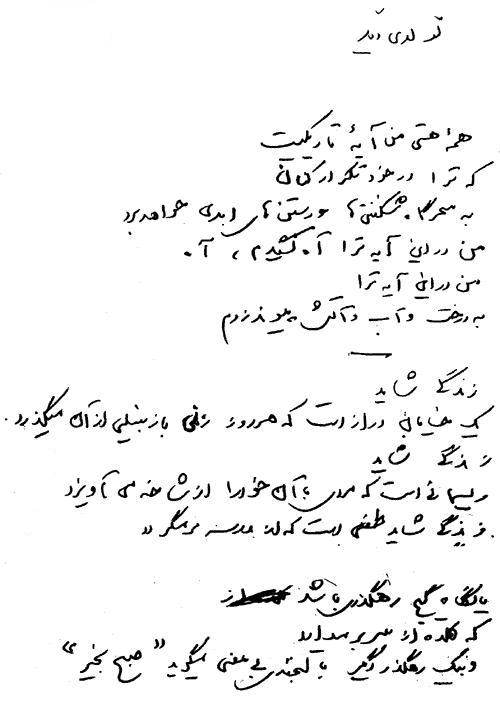 تولدی دیگر
همهٔ هستی من آیهٔ تاریکیست
که ترا در خود تکرار کنان
به سحرگاه شکفتن‌ها و رستن‌های ابدی خواهد برد
من در این آیه ترا آه کشیدم ، آه
من در این آیه ترا
به درخت و آب و آتش پیوند زدم
زندگی شاید
یک خیابان دراز است که هر روز زنی با زنبیلی از آن میگذرد .
زندگی شاید
ریسمانی است که مردی با آن خود را از شاخه می آویزد
زندگی شاید طفلی است که از مدرسه بر میگردد
یا نگاه گیج رهگذری باشد
که کلاه از سر بر میدارد
و به یک رهگذر دیگر با لبخندی بی معنی میگوید " صبح بخیر "